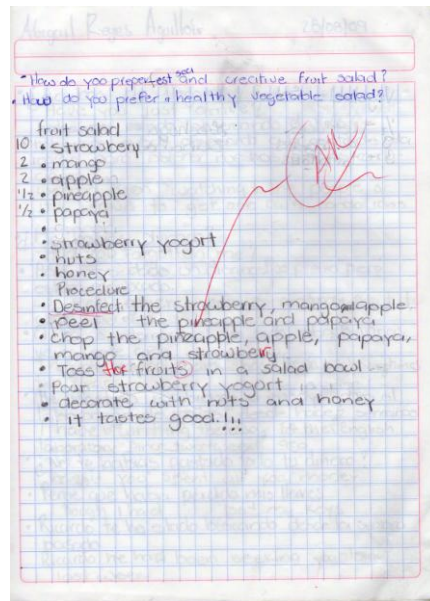 25/09/09
"How do you prepare fest and creative fruit salad?
• How do you prefer a healthy vegetable salad?
fruit salad
10 • strawbery
2 • mango
2 • apple
1/2 • pineapple
1/2 • papaya
•
• strawberry yogort
• nuts
• honey
Procedure
• Desinfect the strawberry, mango and apple.
• peel the pineapple and papaya
• chop the pineapple, apple, papaya,
mango and strawberry
• Toss the fruits in a salad bowl
• Pour strawberry yogort
• decorate with nuts and honey
• it tastes good.!!!